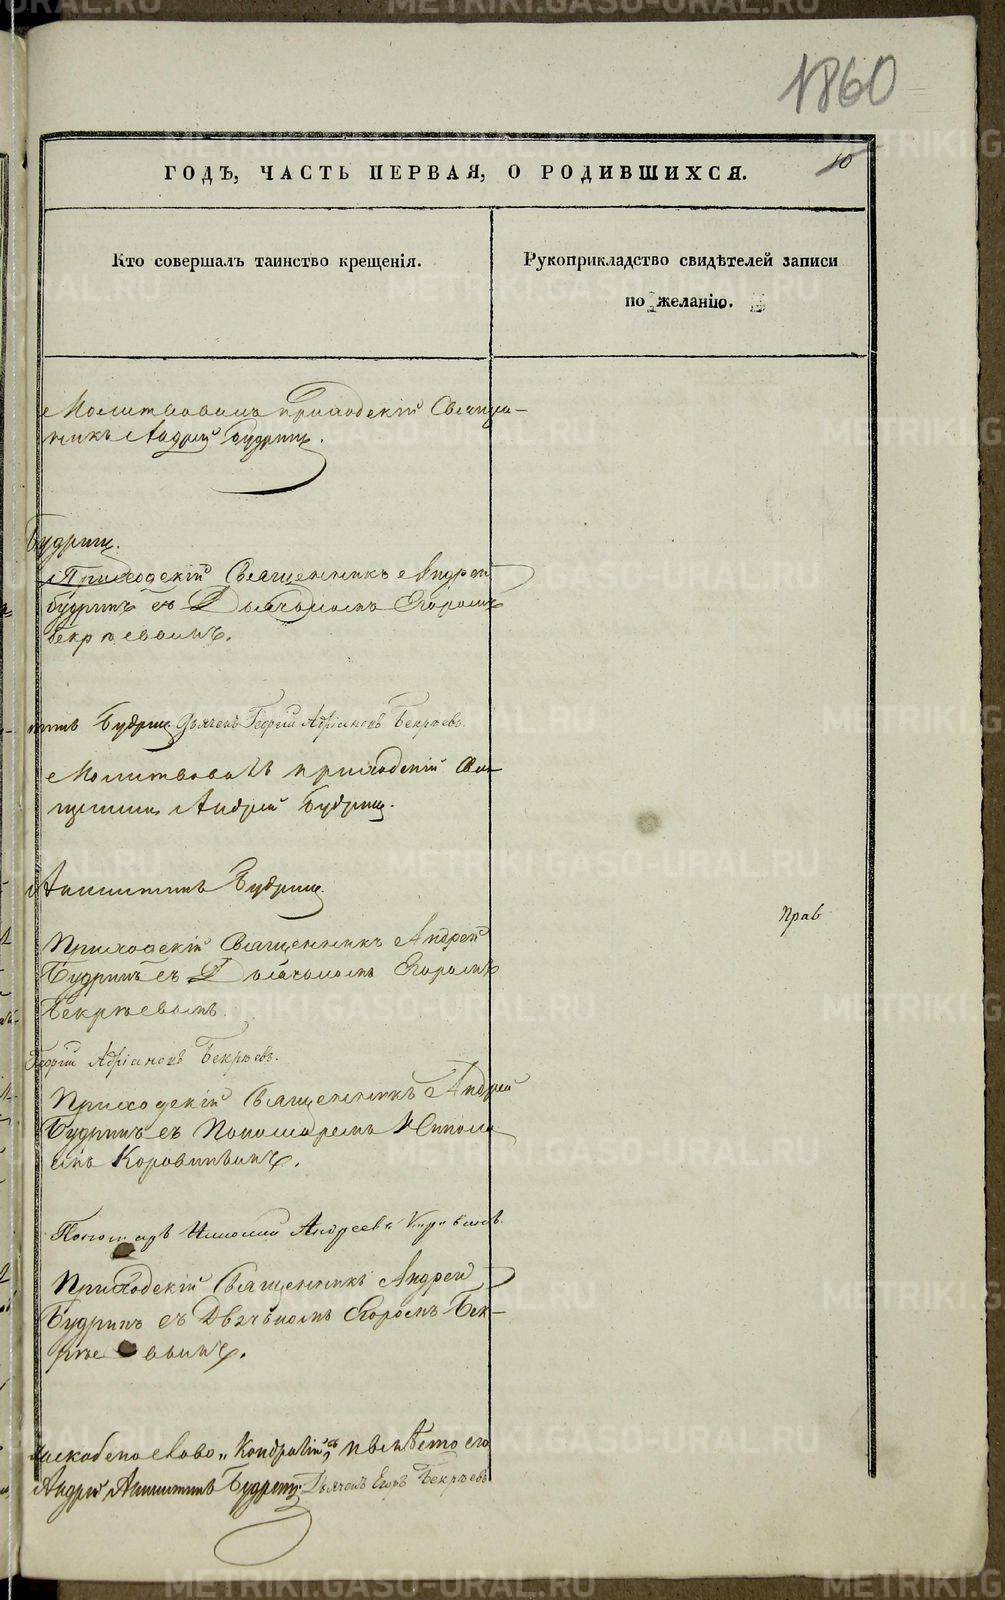 1860
10
ГОДЪ, ЧАСТЬ ПЕРВАЯ, О РОДИВШИХСЯ.
Кто совершалъ таинство крещенія.
Рукоприкладство свидѣтелей записи
по желанію.
Молитвовалъ приходскій Священ-
никъ Андрей Будринъ.
Будринъ.
Приходскій Священникъ Андрей
Будринъ съ Дьячкомъ Егоромъ
Бекрѣевымъ.
Будринъ Дьячекъ Георгій Адріановъ Бекрѣевъ.
Молитвовалъ приходскій Свя-
щенникъ Андрей Будринъ.
Будринъ.
Прав
Приходскій Священникъ Андрей
Будринъ съ Дьячкомъ Егоромъ
Бекрѣевымъ.
Георгій Адріановъ Бекрѣевъ.
Приходскій Священникъ Андрей
Будринъ съ Пономаремъ
Коровинымъ.
Пономарь Андреевъ
Приходскій Священникъ Андрей
Будринъ съ Дьячкомъ Егоромъ Бек-
рѣевымъ.
слово „Кондратій“, вмѣсто его
Андрей Будринъ Дьячекъ Егоръ Бекрѣевъ
METRIKI.GASO-URAL.RU